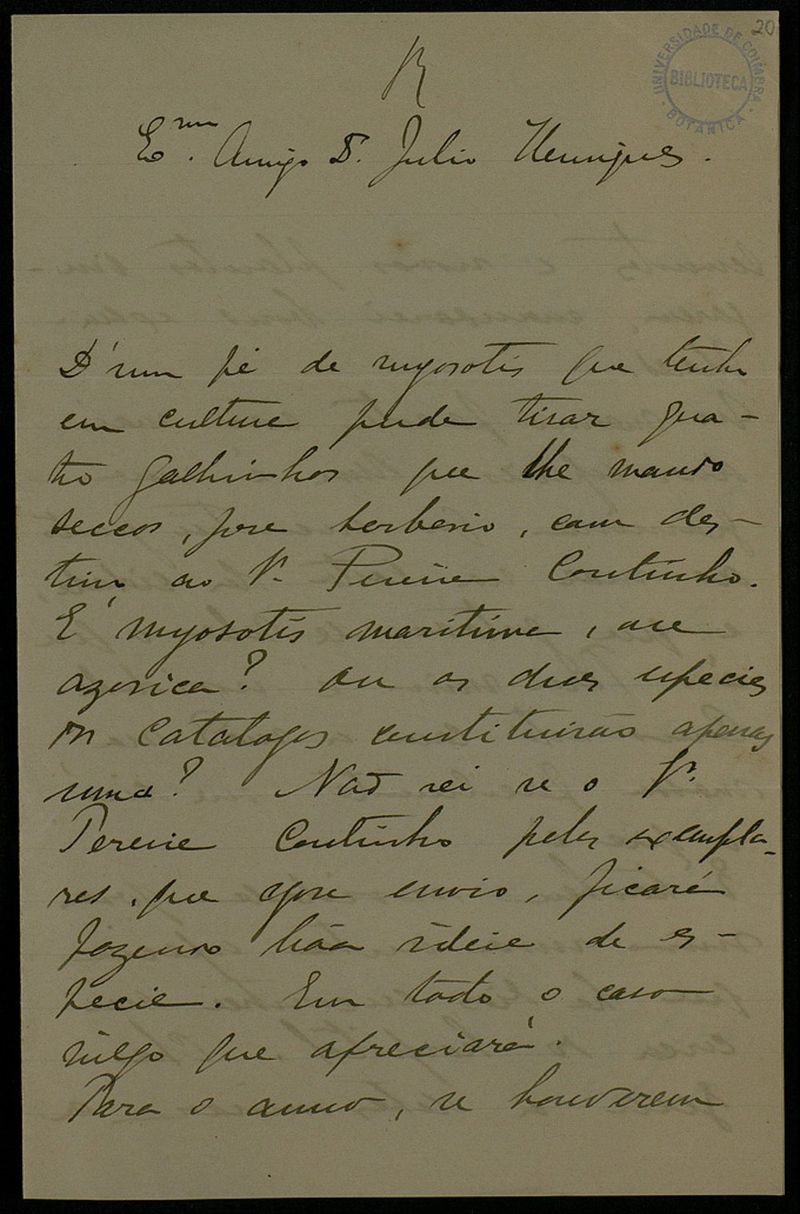 20
UNIVERSIDADE DE COIMBRA
BIBLIOTECA
BOTANICA
R
Ex.mo Amigo Dr. Julio Henriques.
D'um pé de myosotis que tenho
em cultura pude tirar qua-
tro galhinhos que lhe mando
seccos, para herbario, com des-
tino ao Sr. Pereira Coutinho.
É myosotis maritima, ou
azorica? Ou as duas especies
dos catalogos constituirão apenas
uma? Não sei se o Sr.
Pereira Coutinho pelos exempla-
res, que agora envio, ficará
fazendo bôa ideia da es-
pecie. Em todo o caso
julgo que apreciará.
Para o anno, se houverem